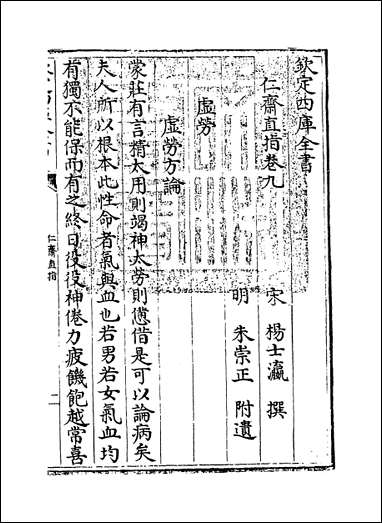 欽定四庫全書
仁齋直指卷九
宋 楊士瀛 撰
明 朱崇正 附遺
虛勞
虛勞方論
蒙莊有言精太用則竭神太勞則憊借是可以論病矣
夫人所以根本此性命者氣與血也若男若女氣血均
有獨不能保而有之終日役役神倦力疲饑飽越常喜
仁齋直指
二